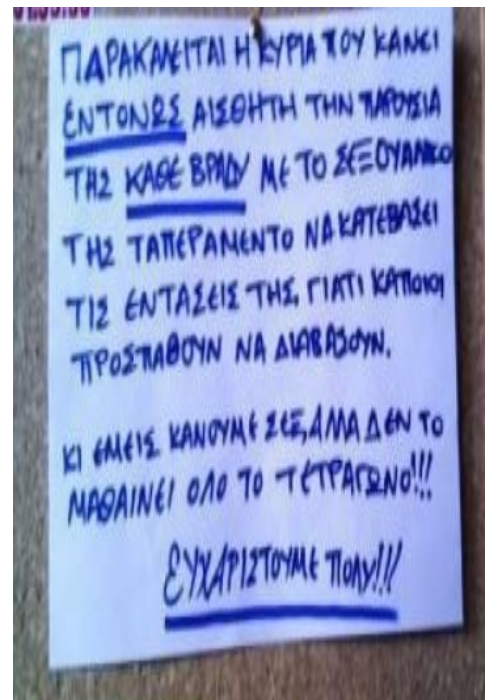 ΠΑΡΑΚΑΛΕΙΤΑΙ Η ΚΥΡΙΑ ΠΟΥ ΚΑΝΕΙ
ΕΝΤΟΝΩΣ ΑΙΣΘΗΤΗ ΤΗΝ ΠΑΡΟΥΣΙΑ
ΤΗΣ ΚΑΘΕ ΒΡΑΔΥ ΜΕ ΤΟ ΣΕΞΟΥΑΛΙΚΟ
ΤΗΣ ΤΑΠΕΡΑΜΕΝΤΟ ΝΑ ΚΑΤΕΒΑΣΕΙ
ΤΙΣ ΕΝΤΑΣΕΙΣ ΤΗΣ, ΓΙΑΤΙ ΚΑΠΟΙΟΙ
ΠΡΟΣΠΑΘΟΥΝ ΝΑ ΔΙΑΒΑΣΟΥΝ.
ΚΙ ΕΜΕΙΣ ΚΑΝΟΥΜΕ ΣΕΞ, ΑΛΛΑ ΔΕΝ ΤΟ
ΜΑΘΑΙΝΕΙ ΟΛΟ ΤΟ ΤΕΤΡΑΓΩΝΟ!!!
ΕΥΧΑΡΙΣΤΟΥΜΕ ΠΟΛΥ!!!